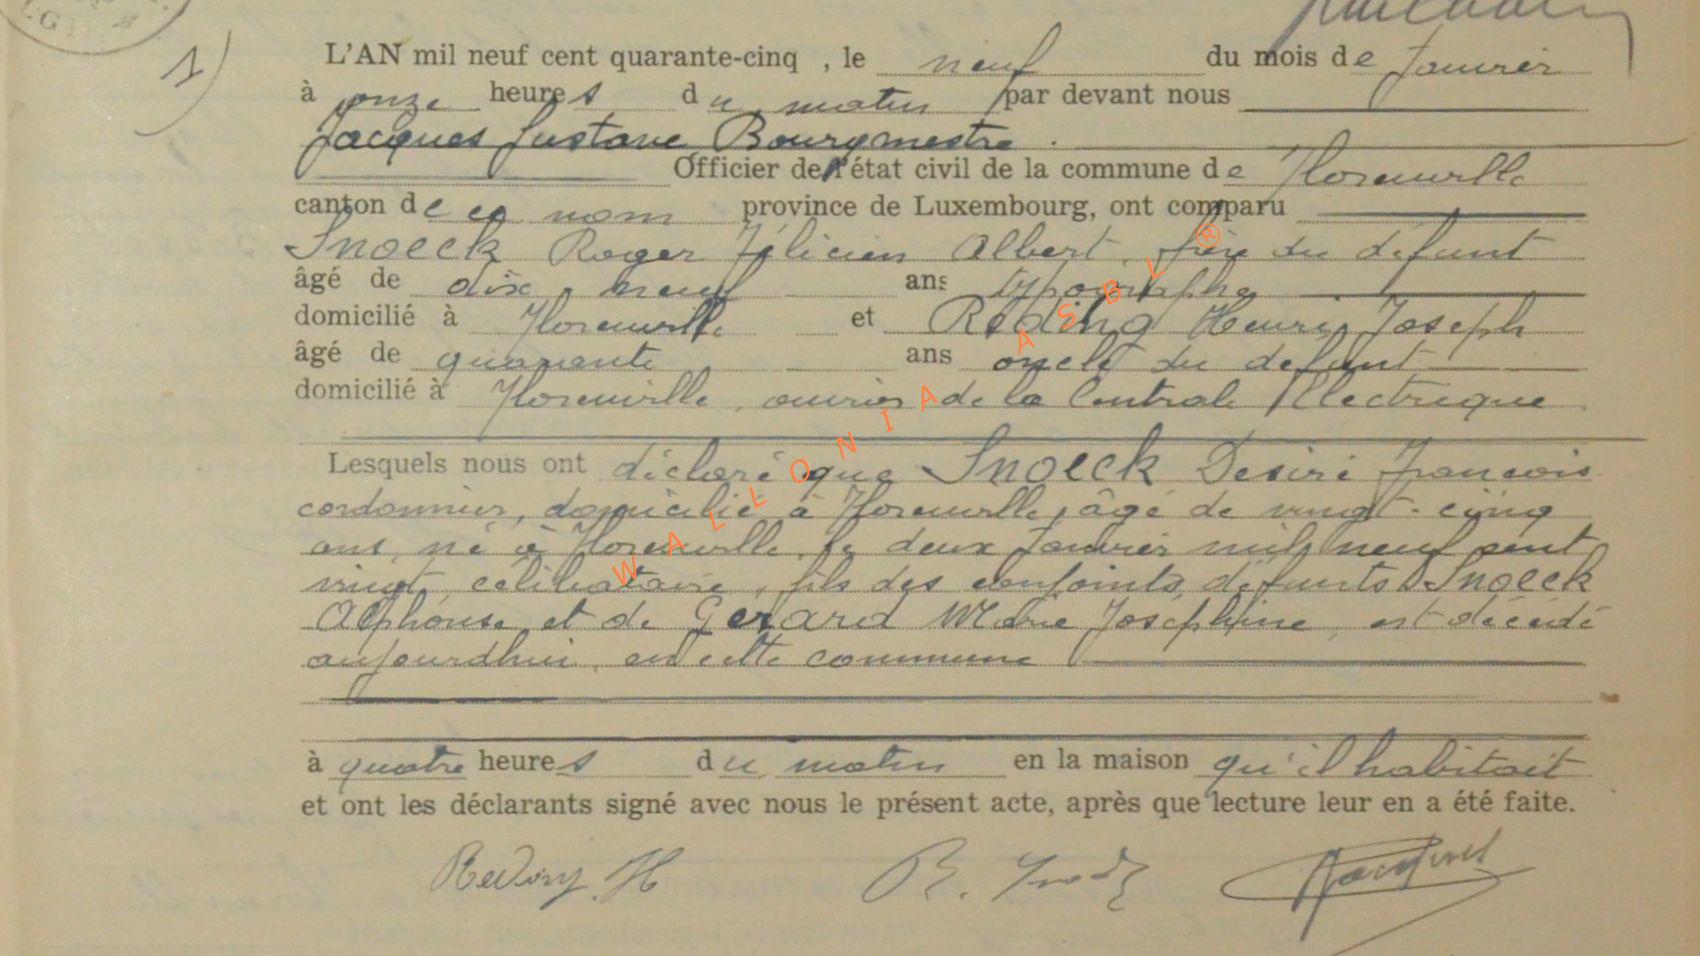 1)
L'AN mil neuf cent quarante-cinq , le neuf du mois de Janvier
à onze heures du matin par devant nous
Jacques Gustave Bourgmestre .
Officier de l'état civil de la commune de Florenville
canton de ce nom province de Luxembourg, ont comparu
Snoeck Roger Félicien Albert, frère du défunt
âgé de dix-neuf ans typographe
domicilié à Florenville et Reding Henri, Joseph
âgé de quarante ans oncle du défunt
domicilié à Florenville, ouvrier de la Centrale Electrique
Lesquels nous ont déclaré que Snoeck Desiré François
cordonnier, domicilié à Florenville, âgé de vingt-cinq
ans, né à Florenville, le deux Janvier mil neuf cent
vingt, célibataire, fils des conjoints, défunts Snoeck
Alphonse et de Gerard Marie Joséphine, est décédé
aujourdhui, en cette commune
à quatre heures du matin en la maison qu'il habitait
et ont les déclarants signé avec nous le présent acte, après que lecture leur en a été faite.
Reding. H R. Snoeck Jacques
WALLONIA ASBL ®